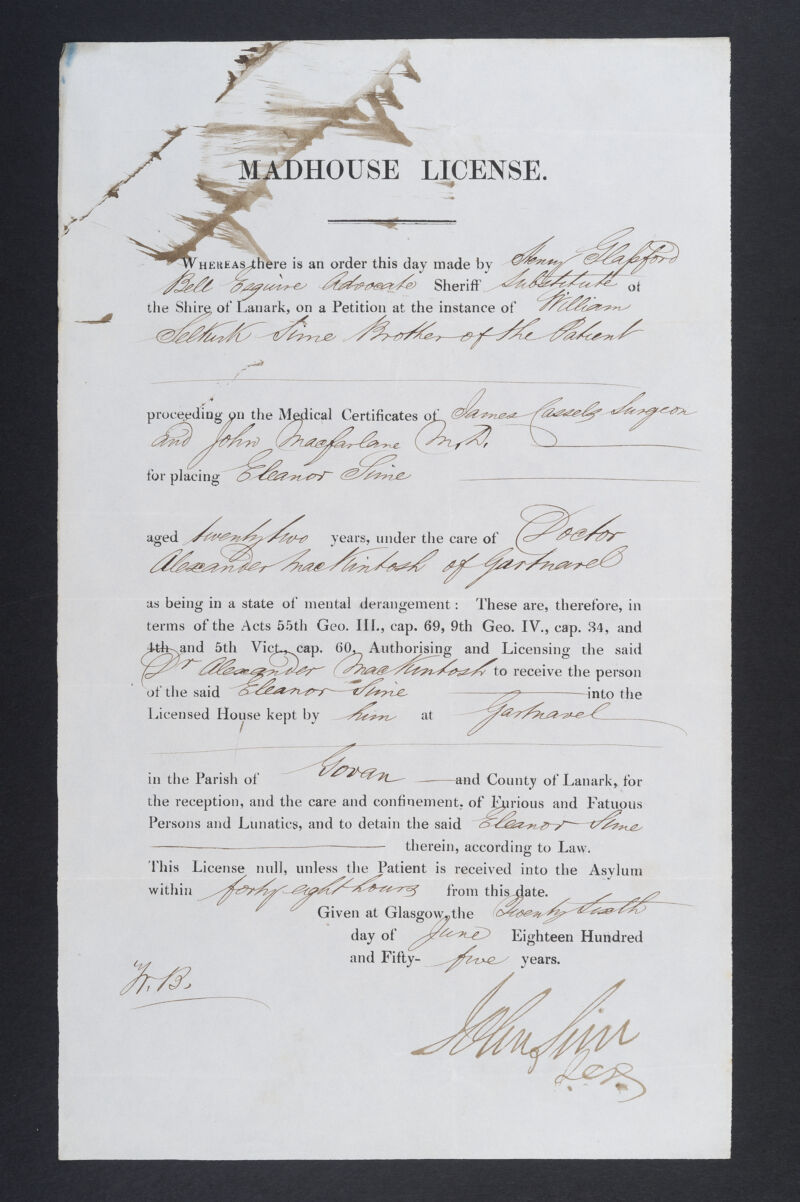 MADHOUSE LICENSE.
WHEREAS there is an order this day made by Henry Glassford
Bell Esquire Advocate Sheriff Substitute of
the Shire of Lanark, on a Petition at the instance of William
Selkirk Sime Brother of the Patient
proceeding on the Medical Certificates of James Cassels Surgeon
and John Macfarlane M.D.
for placing Eleanor Sime
aged twenty two years, under the care of Doctor
Alexander MacKintosh of Gartnavel
as being in a state of mental derangement : These are, therefore, in
terms of the Acts 55th Geo. III., cap. 69, 9th Geo. IV., cap. 34, and
4th and 5th Vict., cap. 60, Authorising and Licensing the said
Dr Alexander MacKintosh to receive the person
of the said Eleanor Sime into the
Licensed House kept by him at Gartnavel
in the Parish of Govan and County of Lanark, for
the reception, and the care and confinement, of Furious and Fatuous
Persons and Lunatics, and to detain the said Eleanor Sime
therein, according to Law.
This License null, unless the Patient is received into the Asylum
within forty eight hours from this date.
Given at Glasgow, the Twenty sixth
day of June Eighteen Hundred
and Fifty- five years.
W. B.
John